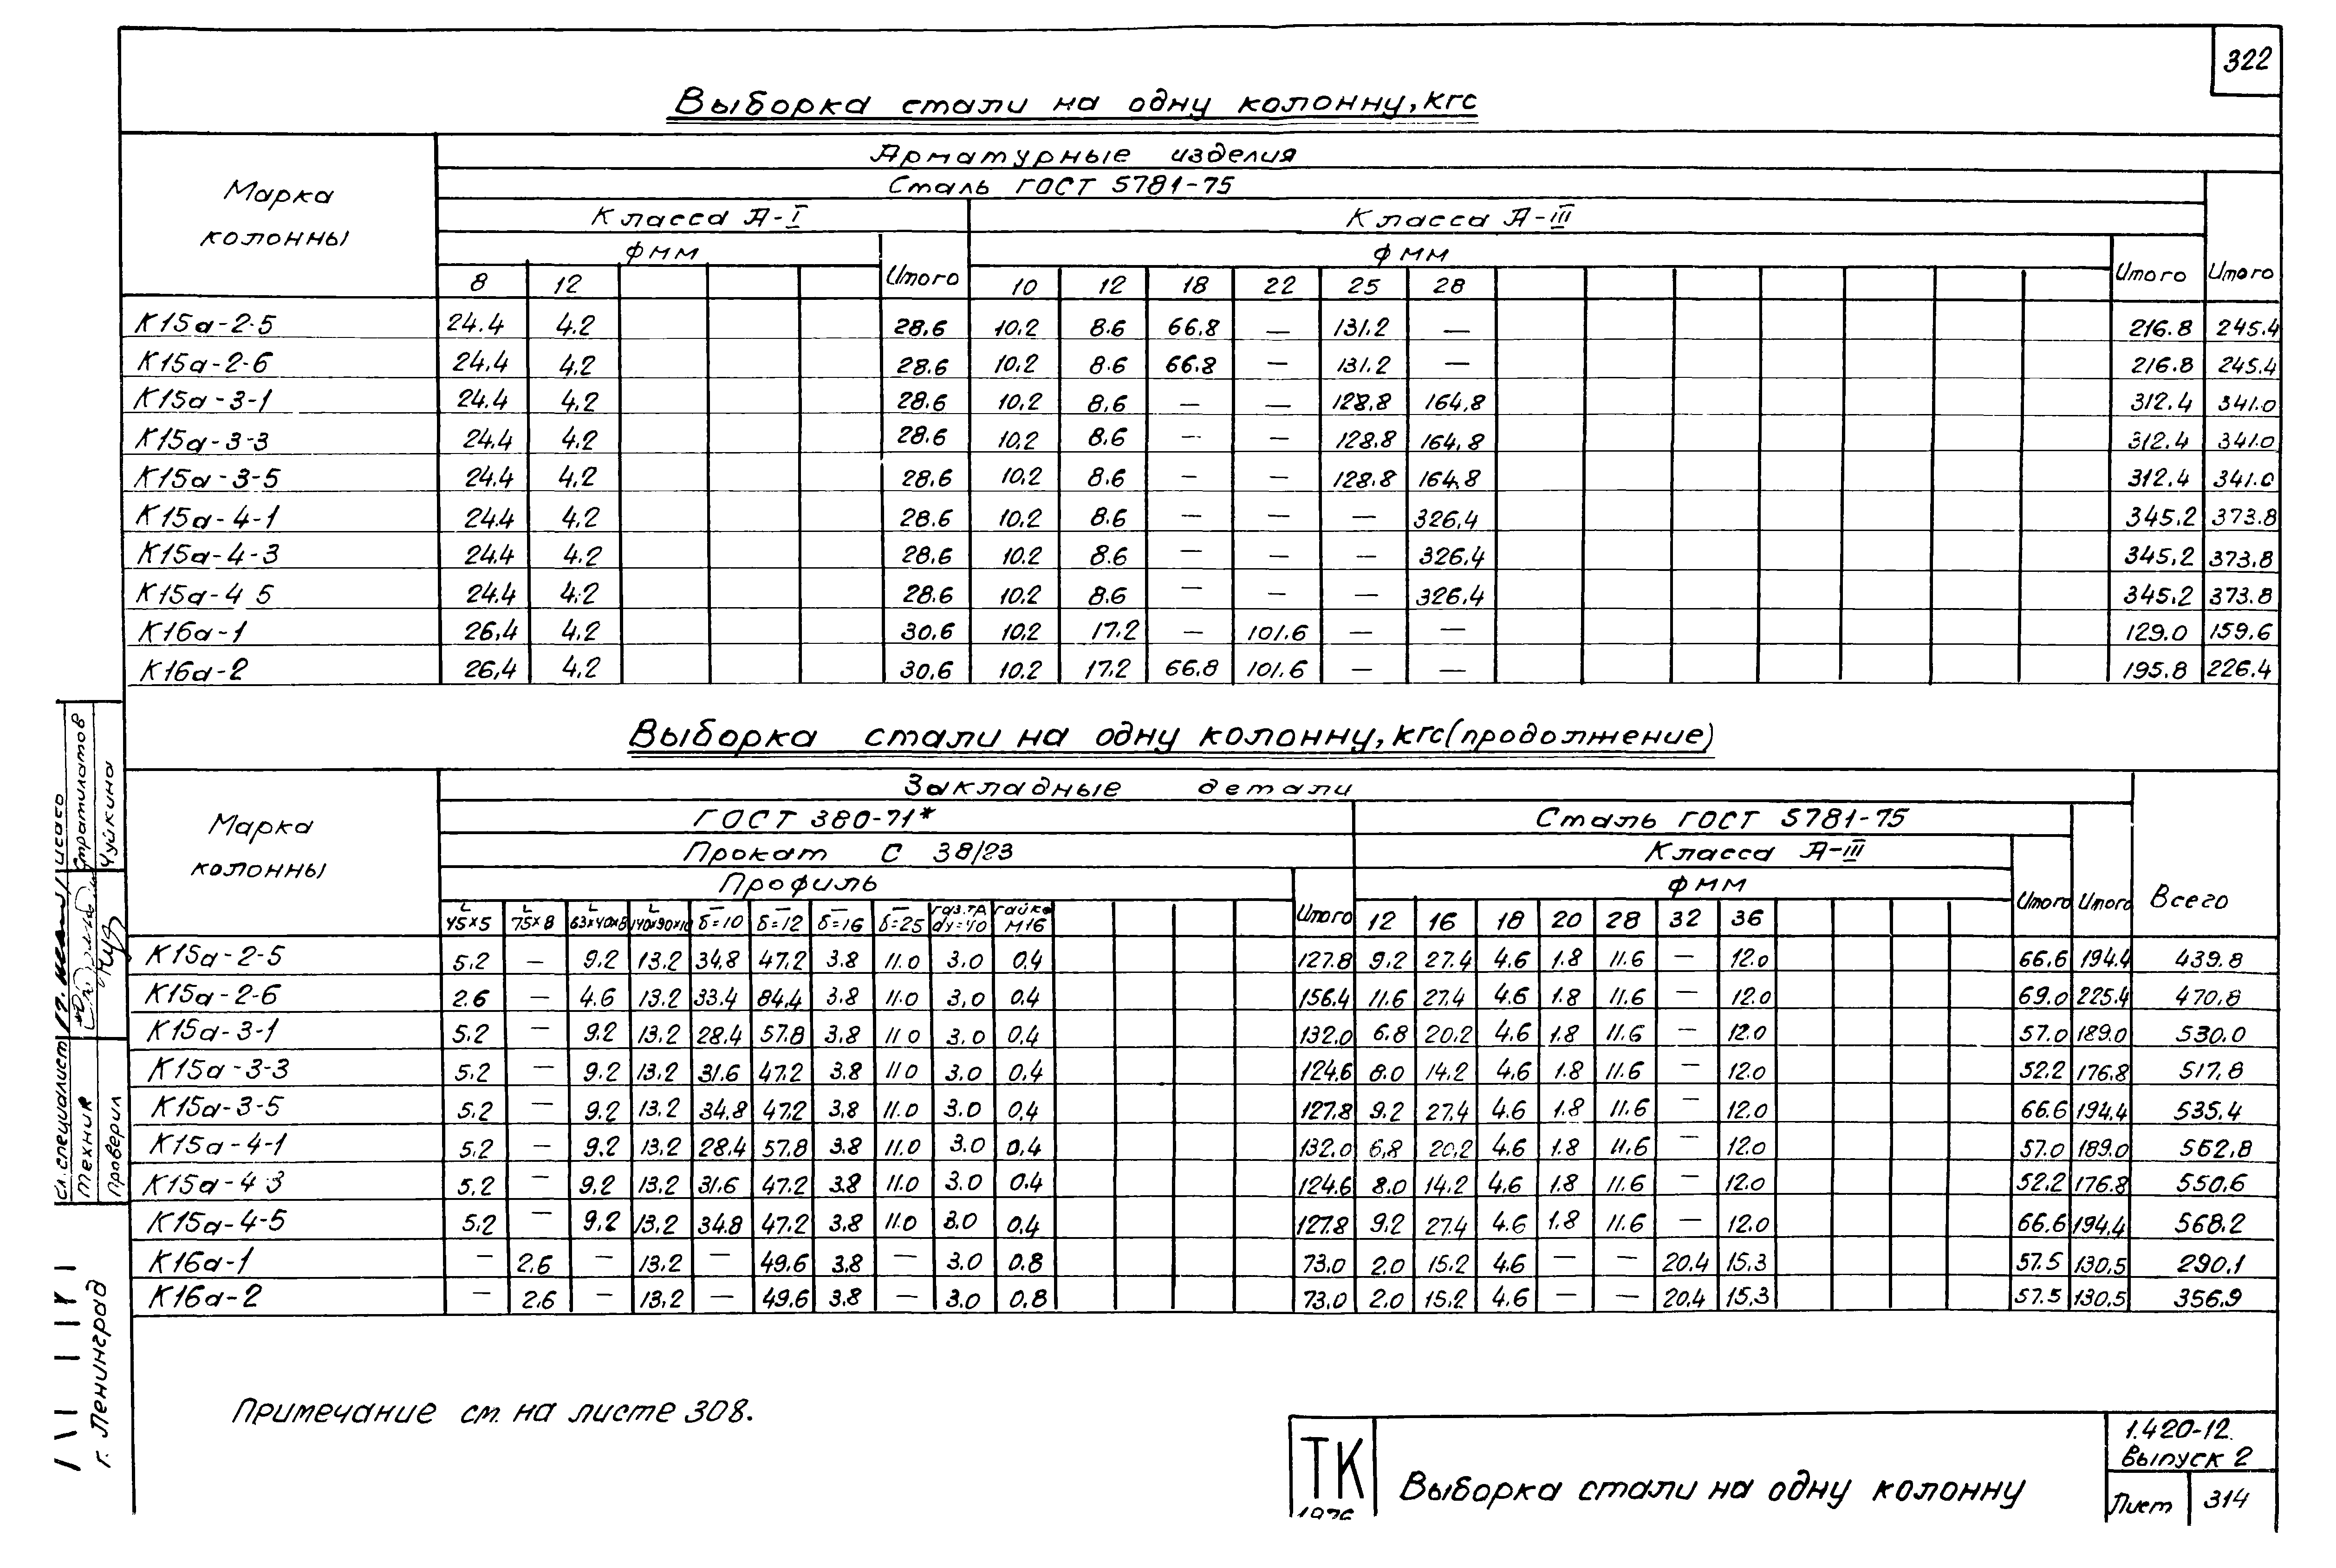 322
Выборка стали на одну колонну, кгс
Марка колонны
Арматурные изделия
Сталь ГОСТ 5781-75
Класса А-I Класса А-III
Фмм Итого Фмм Итого Итого
8 12 10 12 18 22 25 28
К15а-2-5 24.4 4.2 28.6 10.2 8.6 66.8 — 131.2 — 216.8 245.4
К15а-2-6 24.4 4.2 28.6 10.2 8.6 66.8 — 131.2 — 216.8 245.4
К15а-3-1 24.4 4.2 28.6 10.2 8.6 — — 128.8 164.8 312.4 341.0
К15а-3-3 24.4 4.2 28.6 10.2 8.6 — — 128.8 164.8 312.4 341.0
К15а-3-5 24.4 4.2 28.6 10.2 8.6 — — 128.8 164.8 312.4 341.0
К15а-4-1 24.4 4.2 28.6 10.2 8.6 — — — 326.4 345.2 373.8
К15а-4-3 24.4 4.2 28.6 10.2 8.6 — — — 326.4 345.2 373.8
К15а-4 5 24.4 4.2 28.6 10.2 8.6 — — — 326.4 345.2 373.8
К16а-1 26.4 4.2 30.6 10.2 17.2 — 101.6 — — 129.0 159.6
К16а-2 26.4 4.2 30.6 10.2 17.2 66.8 101.6 — — 195.8 226.4
Выборка стали на одну колонну, кгс (продолжение)
Марка колонны
Закладные детали
ГОСТ 380-71* Сталь ГОСТ 5781-75
Прокат С 38/23 Класса А-III
Профиль Итого Фмм Итого Итого Всего
L 45×5 L 75×8 L 63×40×8 L 140×90×10 — δ=10 — δ=12 — δ=16 — δ=25 газ.тр. dу=40 гайка М16 12 16 18 20 28 32 36
К15а-2-5 5.2 — 9.2 13.2 34.8 47.2 3.8 11.0 3.0 0.4 127.8 9.2 27.4 4.6 1.8 11.6 — 12.0 66.6 194.4 439.8
К15а-2-6 2.6 — 4.6 13.2 33.4 84.4 3.8 11.0 3.0 0.4 156.4 11.6 27.4 4.6 1.8 11.6 — 12.0 69.0 225.4 470.8
К15а-3-1 5.2 — 9.2 13.2 28.4 57.8 3.8 11 0 3.0 0.4 132.0 6.8 20.2 4.6 1.8 11.6 — 12.0 57.0 189.0 530.0
К15а-3-3 5.2 — 9.2 13.2 31.6 47.2 3.8 11 0 3.0 0.4 124.6 8.0 14.2 4.6 1.8 11.6 — 12.0 52.2 176.8 517.8
К15а-3-5 5.2 — 9.2 13.2 34.8 47.2 3.8 11.0 3.0 0.4 127.8 9.2 27.4 4.6 1.8 11.6 — 12.0 66.6 194.4 535.4
К15а-4-1 5.2 — 9.2 13.2 28.4 57.8 3.8 11.0 3.0 0.4 132.0 6.8 20.2 4.6 1.8 11.6 — 12.0 57.0 189.0 562.8
К15а-4 3 5.2 — 9.2 13.2 31.6 47.2 3.8 11.0 3.0 0.4 124.6 8.0 14.2 4.6 1.8 11.6 — 12.0 52.2 176.8 550.6
К15а-4-5 5.2 — 9.2 13.2 34.8 47.2 3.8 11.0 3.0 0.4 127.8 9.2 27.4 4.6 1.8 11.6 — 12.0 66.6 194.4 568.2
К16а-1 — 2.6 — 13.2 — 49.6 3.8 — 3.0 0.8 73.0 2.0 15.2 4.6 — — 20.4 15.3 57.5 130.5 290.1
К16а-2 — 2.6 — 13.2 — 49.6 3.8 — 3.0 0.8 73.0 2.0 15.2 4.6 — — 20.4 15.3 57.5 130.5 356.9
Примечание см. на листе 308.
ТК
1976
Выборка стали на одну колонну
1.420-12.
Выпуск 2
Лист 314
Гл. специалист
Техник Стратилатов
Проверил Чуйкина
г. Ленинград